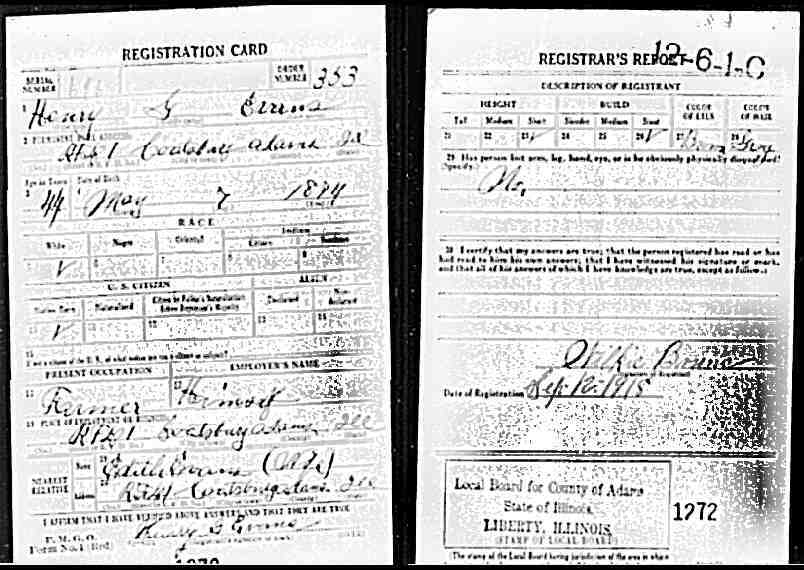 REGISTRATION CARD
SERIAL NUMBER
ORDER NUMBER 353
1 Henry G Evens
2 PERMANENT HOME ADDRESS
RFD 1 Coatsburg Adams Ill
Age in Years Date of Birth
3 44 4 May 7 1874
RACE
White Negro Oriental Indian
Citizen Noncitizen
5 ✓ 6 7 8 9
U. S. CITIZEN ALIEN
Native Born Naturalized Citizen by Father's Naturalization Before Registrant's Majority Declarant Non-declarant
10 ✓ 11 12 13 14
15 If not a citizen of the U. S., of what nation are you a citizen or subject?
PRESENT OCCUPATION EMPLOYER'S NAME
16 Farmer 17 Himself
18 PLACE OF EMPLOYMENT OR BUSINESS
RFD 1 Coatsburg Adams Ill
NEAREST RELATIVE
Name 19 Edith Evens (Wife)
Address 20 RFD 1 Coatsburg Adams Ill
I AFFIRM THAT I HAVE VERIFIED ABOVE ANSWERS AND THAT THEY ARE TRUE
P. M. G. O.
Form No. 1 (Red)
Henry G Evens
1272
REGISTRAR'S REPORT 12-6-1-C
DESCRIPTION OF REGISTRANT
HEIGHT BUILD COLOR OF EYES COLOR OF HAIR
Tall Medium Short Slender Medium Stout
21 22 23 ✓ 24 25 26 ✓ 27 Brown 28 Grey
29 Has person lost arm, leg, hand, eye, or is he obviously physically disqualified?
(Specify.) No.
30 I certify that my answers are true; that the person registered has read or has
had read to him his own answers; that I have witnessed his signature or mark,
and that all of his answers of which I have knowledge are true, except as follows:
Date of Registration Sep 12, 1918
Local Board for County of Adams
State of Illinois
LIBERTY, ILLINOIS
(STAMP OF LOCAL BOARD)
1272
(The stamp of the Local Board having jurisdiction of the area in which